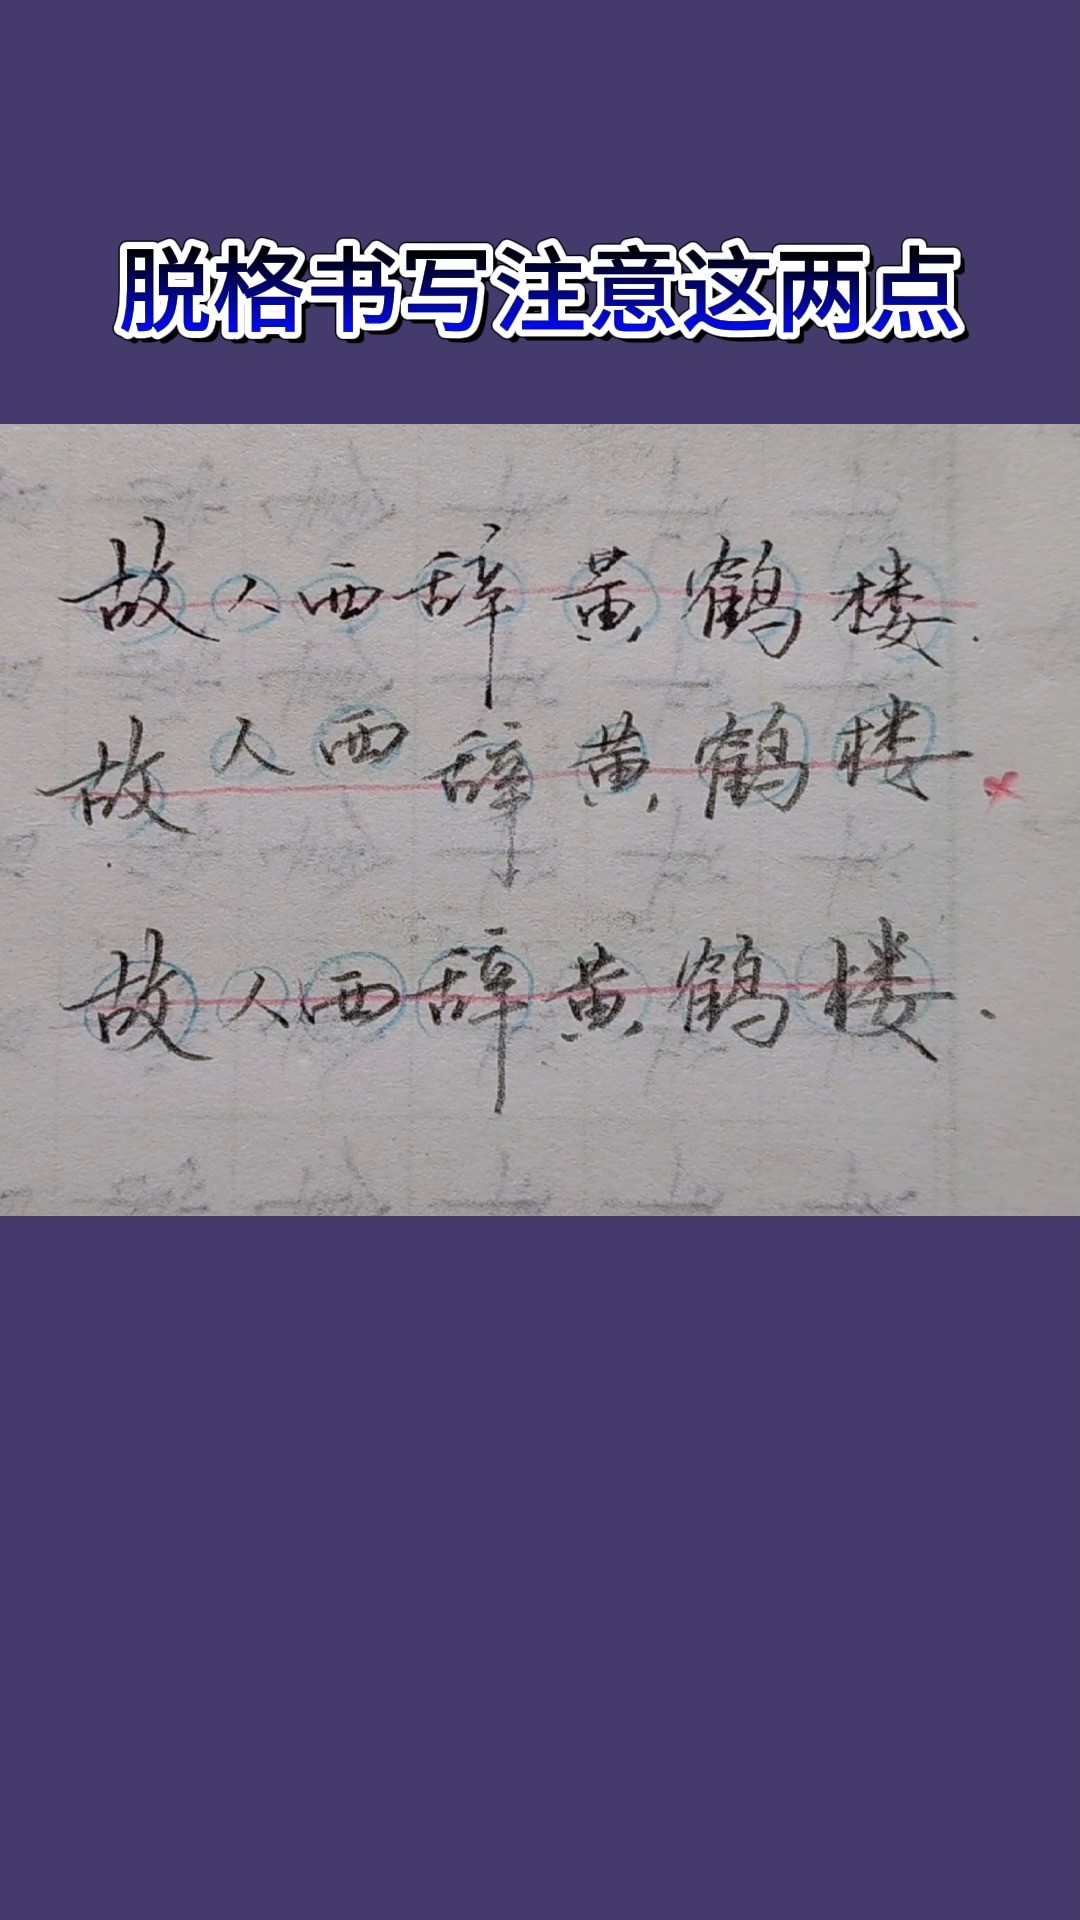 脱格书写注意这两点
故人西辞黄鹤楼.
故人西辞黄鹤楼
故人西辞黄鹤楼.